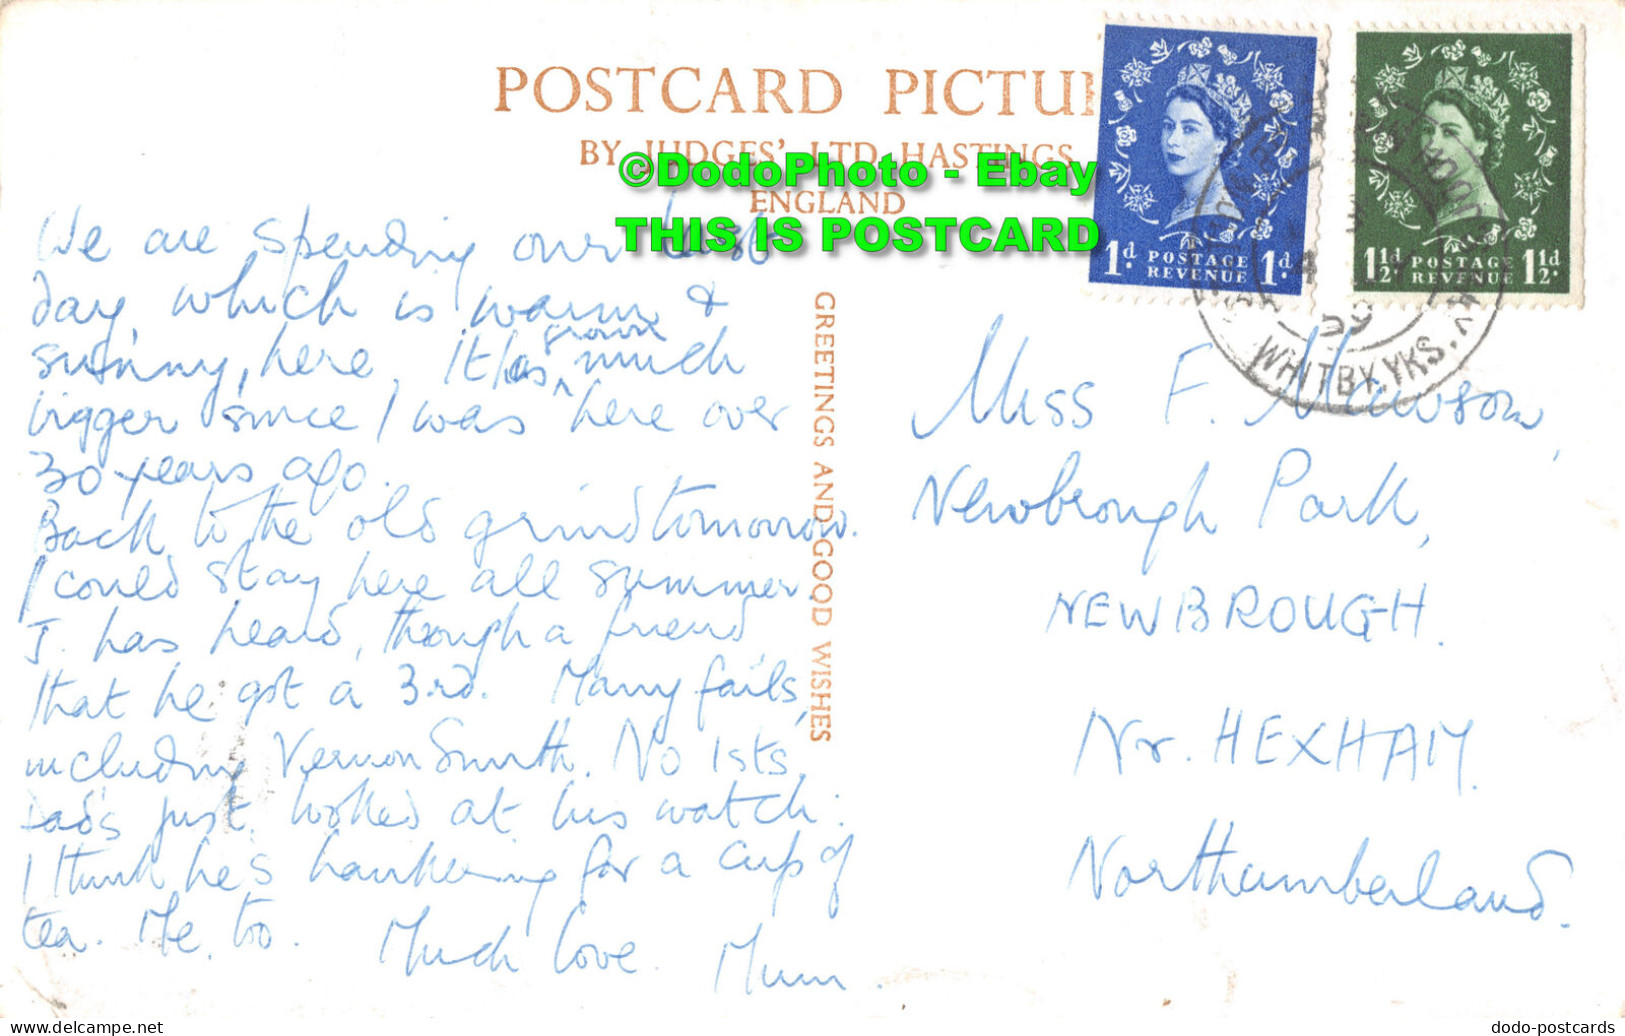 POSTCARD PICTU
BY JUDGES' LTD HASTINGS
ENGLAND
©DodoPhoto - Ebay
THIS IS POSTCARD
1d. POSTAGE REVENUE 1d.
1½d. POSTAGE REVENUE 1½d.
59
WHITBY, YKS.
GREETINGS AND GOOD WISHES
We are spending our last
day, which is warm &
sunny, here. It has grown much
bigger since I was here over
30 years ago.
Back to the old grind tomorrow.
I could stay here all summer
J. has heard, through a friend
that he got a 3rd. Many fails,
including Vernon Smith. No 1sts.
Dad's just looked at his watch:
I think he's hankering for a cup of
tea. Me, too.
Much love. Mum.
Miss F. Mawson,
Newbrough Park,
NEWBROUGH.
Nr. HEXHAM.
Northumberland.
dodo-postcards